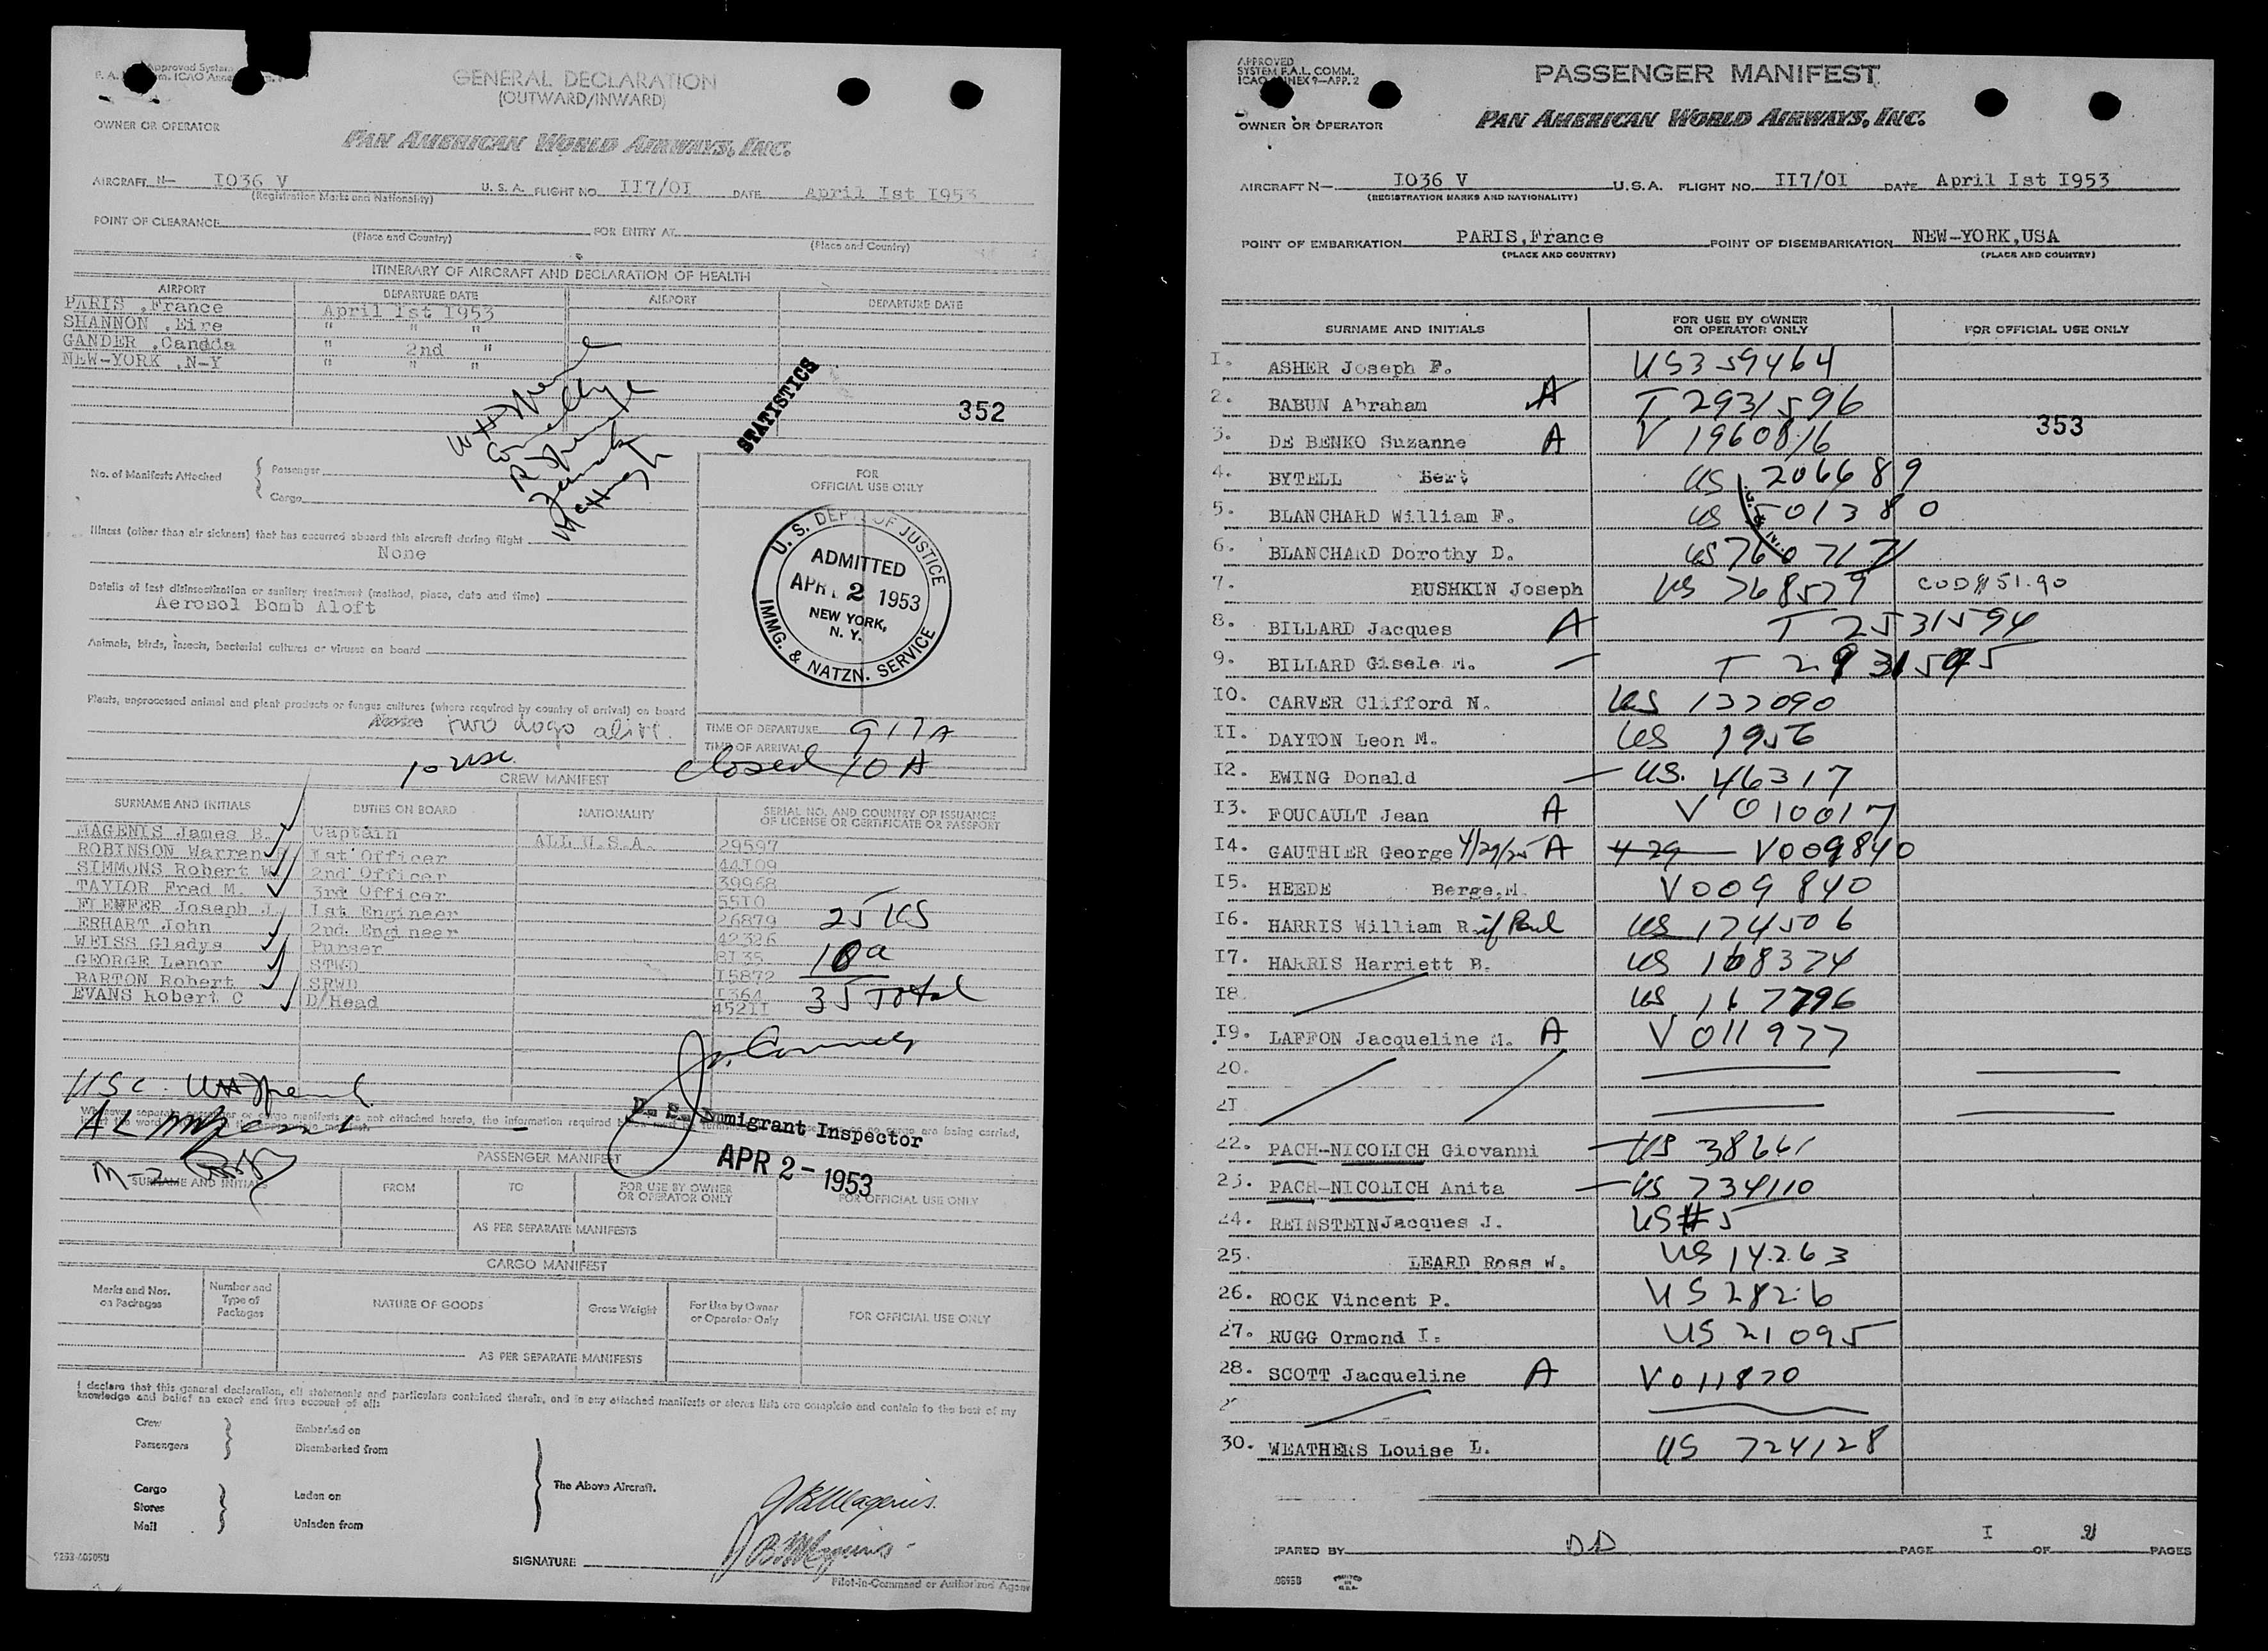 Approved System
F. A. m. ICAO Anne
GENERAL DECLARATION
(OUTWARD/INWARD)
OWNER OR OPERATOR
PAN AMERICAN WORLD AIRWAYS, INC.
AIRCRAFT N- I036 V U. S. A. FLIGHT NO. II7/0I DATE April Ist I953
(Registration Marks and Nationality)
POINT OF CLEARANCE FOR ENTRY AT
(Place and Country) (Place and Country)
ITINERARY OF AIRCRAFT AND DECLARATION OF HEALTH
AIRPORT DEPARTURE DATE AIRPORT DEPARTURE DATE
PARIS ,France April Ist I953
SHANNON ,Eire " " "
GANDER ,Canada " 2nd "
NEW-YORK ,N-Y " " "
STATISTICS
352
No. of Manifests Attached { Passenger
Cargo
FOR
OFFICIAL USE ONLY
Illness (other than air sickness) that has occurred aboard this aircraft during flight
None
Details of last disinsectization or sanitary treatment (method, place, date and time)
Aerosol Bomb Aloft
Animals, birds, insects, bacterial cultures or viruses on board
Plants, unprocessed animal and plant products or fungus cultures (where required by country of arrival) on board
None two dogs alive.
U. S. DEPT. OF JUSTICE
ADMITTED
APR. 2 1953
NEW YORK,
N. Y.
IMMG. & NATZN. SERVICE
TIME OF DEPARTURE 917A
TIME OF ARRIVAL
closed 10 A
10 usc
CREW MANIFEST
SURNAME AND INITIALS DUTIES ON BOARD NATIONALITY SERIAL NO. AND COUNTRY OF ISSUANCE
OF LICENSE OR CERTIFICATE OR PASSPORT
MAGENIS James B. Captain ALL U.S.A. 29597
ROBINSON Warren Ist Officer 44I09
SIMMONS Robert W 2nd Officer 39968
TAYLOR Fred M. 3rd Officer 55I0
Joseph J. Ist Engineer 26879
ERHART John 2nd Engineer 42326
WEISS Gladys Purser 8I35
GEORGE Lenor STWD I5872
BARTON Robert SRWD I364
EVANS Robert C D/Head 452II
25 US
10a
35 Total
USC.
U. S. Immigrant Inspector
APR 2 - 1953
PASSENGER MANIFEST
SURNAME AND INITIALS FROM TO FOR USE BY OWNER
OR OPERATOR ONLY FOR OFFICIAL USE ONLY
AS PER SEPARATE MANIFESTS
CARGO MANIFEST
Marks and Nos.
on Packages Number and
Type of
Packages NATURE OF GOODS Gross Weight For Use by Owner
or Operator Only FOR OFFICIAL USE ONLY
AS PER SEPARATE MANIFESTS
I declare that this general declaration, all statements and particulars contained therein, and in any attached manifests or stores lists are complete and contain to the best of my
knowledge and belief an exact and true account of all:
Crew Embarked on
Passengers Disembarked from
Cargo Laden on The Above Aircraft.
Stores
Mail Unladen from
SIGNATURE
Pilot-in-Command or Authorized Agent
APPROVED
SYSTEM F.A.L. COMM.
ICAO ANNEX 9—APP. 2
PASSENGER MANIFEST
OWNER OR OPERATOR
PAN AMERICAN WORLD AIRWAYS, INC.
AIRCRAFT N— I036 V U.S.A. FLIGHT NO. II7/0I DATE April Ist I953
(REGISTRATION MARKS AND NATIONALITY)
POINT OF EMBARKATION PARIS,France POINT OF DISEMBARKATION NEW-YORK,USA
(PLACE AND COUNTRY) (PLACE AND COUNTRY)
SURNAME AND INITIALS FOR USE BY OWNER
OR OPERATOR ONLY FOR OFFICIAL USE ONLY
I. ASHER Joseph F. US 359464
2. BABUN Abraham A T 2931596
353
3. DE BENKO Suzanne A V 1960816
4. BYTELL Bert US 206689
5. BLANCHARD William F. US 501380
6. BLANCHARD Dorothy D. US 760717
7. BUSHKIN Joseph US 768579 COD $51.90
8. BILLARD Jacques A T 2531594
9. BILLARD Gisele M. — T 2931595
I0. CARVER Clifford N. US 132090
II. DAYTON Leon M. US 1956
I2. EWING Donald — US. 46317
I3. FOUCAULT Jean A V 010017
I4. GAUTHIER George 4/29/25 A 4-29 V009840
I5. HEEDE Berge.M. V009 840
I6. HARRIS William R. US 174506
I7. HARRIS Harriett B. US 168374
I8. US 167796
I9. LAFFON Jacqueline M. A V 011977
20.
2I
22. PACH-NICOLICH Giovanni — US 38661
23. PACH-NICOLICH Anita — US 734110
24. REINSTEIN Jacques J. US # 5
25. LEARD Ross W. US 14263
26. ROCK Vincent P. US 2826
27. RUGG Ormond I. US 21095
28. SCOTT Jacqueline A V011870
30. WEATHERS Louise L. US 724128
PARED BY DD PAGE I OF 2 PAGES